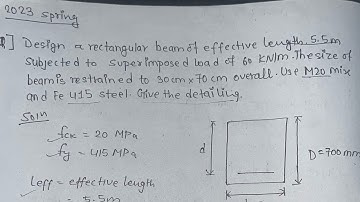 2023 spring
Q] Design a rectangular beam of effective length 5.5m
subjected to superimposed load of 60 KN/m. The size of
beam is restrained to 30cm x 70 cm overall. Use M20 mix
and Fe 415 steel. Give the detailing.
Soln
fck = 20 MPa
fy = 415 MPa
d
D = 700 mm
leff = effective length
= 5.5m
b